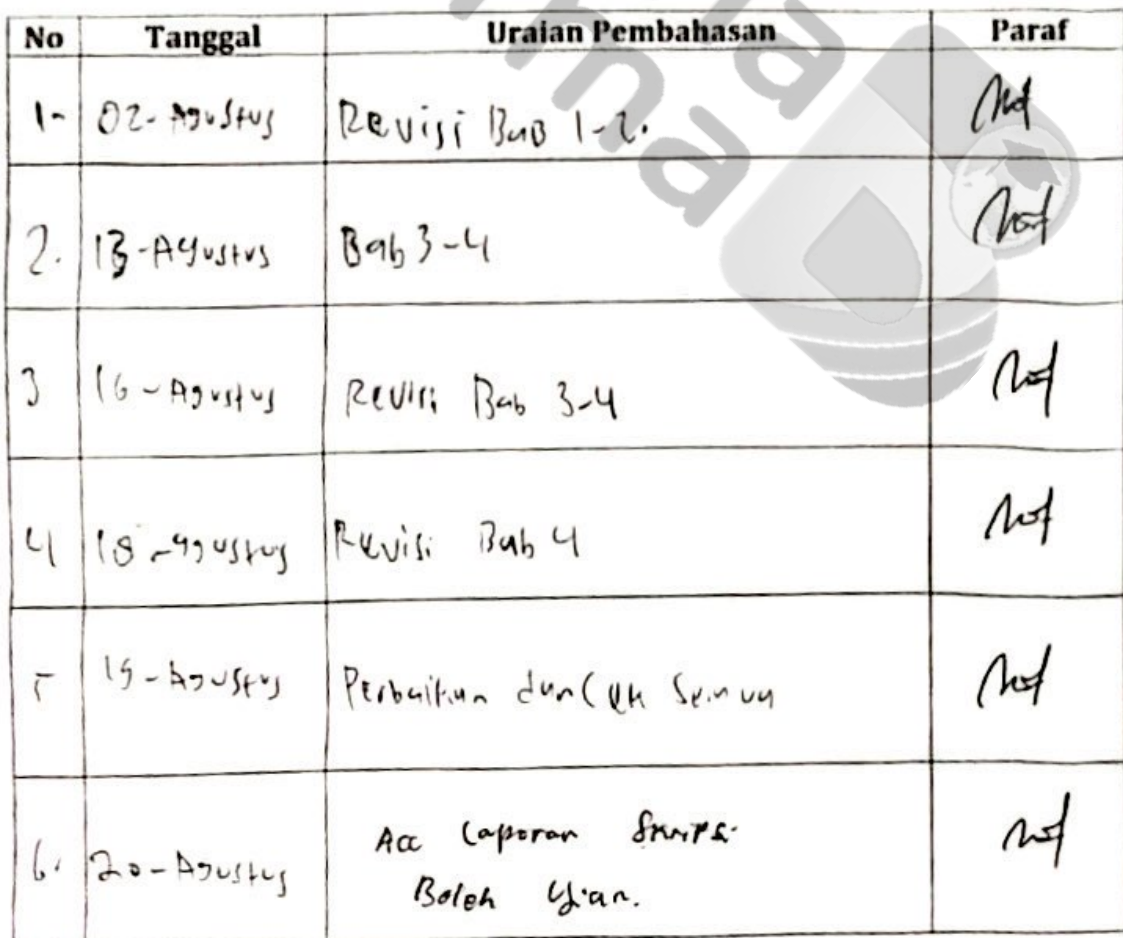 No Tanggal Uraian Pembahasan Paraf
1- 02-Agustus Revisi Bab 1-2.
2. 13-Agustus Bab 3-4
3 16-Agustus Revisi Bab 3-4
4 18-Agustus Revisi Bab 4
5 19-Agustus Perbaikan dan Cek Semua
6. 20-Agustus Acc Laporan Skripsi
Boleh Ujian.